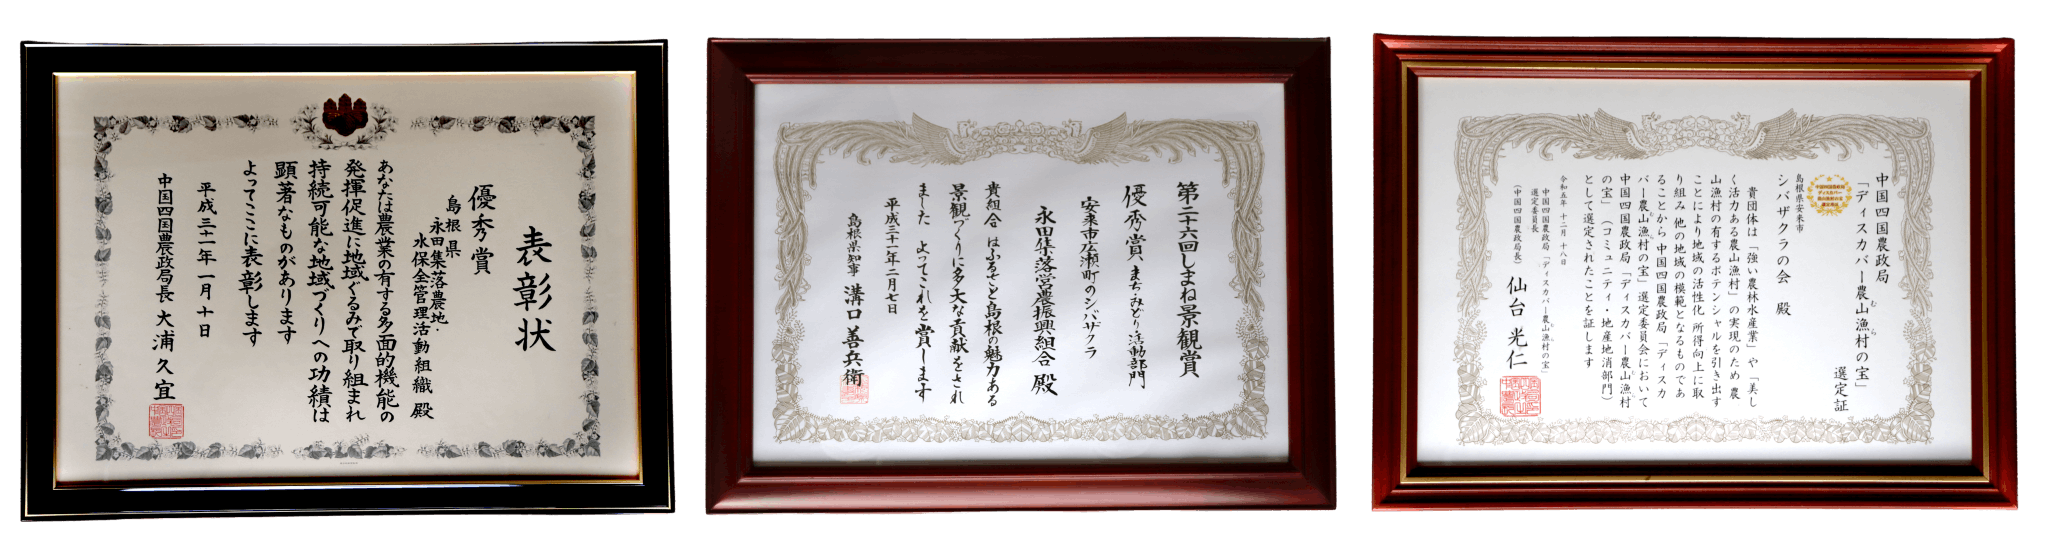 表彰状
優秀賞
島根県
永田集落農地・
水保全管理活動組織 殿
あなたは農業の有する多面的機能の
発揮促進に地域ぐるみで取り組まれ
持続可能な地域づくりへの功績は
顕著なものがあります
よってここに表彰します
平成三十一年一月十日
中国四国農政局長 大浦久宜
第二十六回しまね景観賞
優秀賞、まち・みどり活動部門
安来市広瀬町のシバザクラ
永田集落営農振興組合 殿
貴組合はふるさと島根の魅力ある
景観づくりに多大な貢献をされ
ました よってこれを賞します
平成三十一年二月七日
島根県知事 溝口善兵衛
中国四国農政局
「ディスカバー農山漁村の宝」
むら
選定証
島根県安来市
シバザクラの会 殿
貴団体は「強い農林水産業」や「美し
く活力ある農山漁村」の実現のため 農
山漁村の有するポテンシャルを引き出す
ことにより地域の活性化 所得向上に取
り組み 他の地域の模範となるものであ
ることから 中国四国農政局「ディスカ
バー農山漁村の宝」選定委員会において
中国四国農政局「ディスカバー農山漁村
の宝」(コミュニティ・地産地消部門)
として選定されたことを証します
令和五年 十二月 十八日
中国四国農政局「ディスカバー農山漁村の宝」
選定委員長
(中国四国農政局長) 仙台光仁